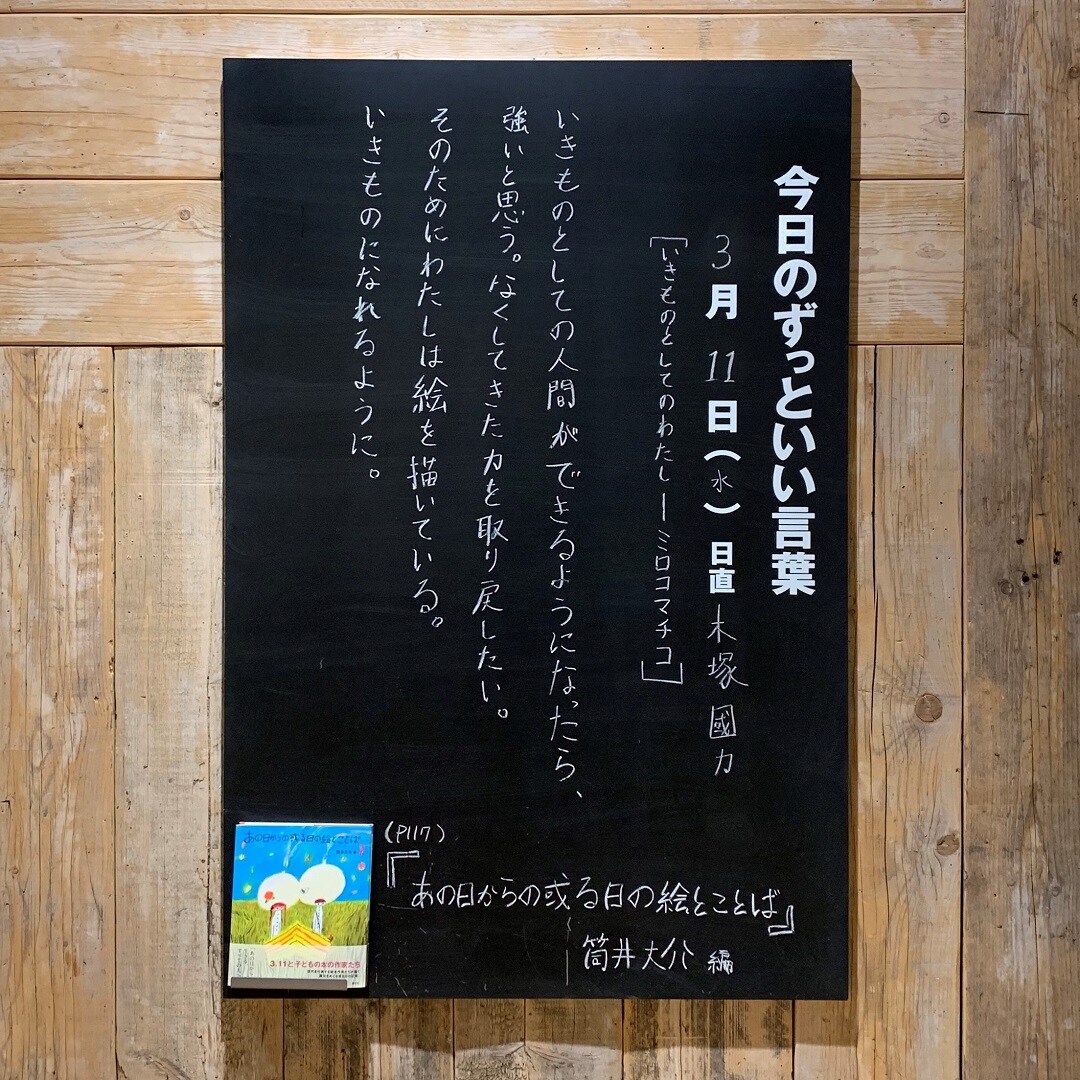 今日のずっといい言葉
3月11日(水)日直 木塚國力
[いきものとしてのわたし―ミロコマチコ]
いきものとしての人間ができるようになったら、
強いと思う。なくしてきた力を取り戻したい。
そのためにわたしは絵を描いている。
いきものになれるように。
(P117)
『あの日からの或る日の絵とことば』
筒井大介 編
あの日からの或る日の絵とことば
3.11と子どもの本の作家たち